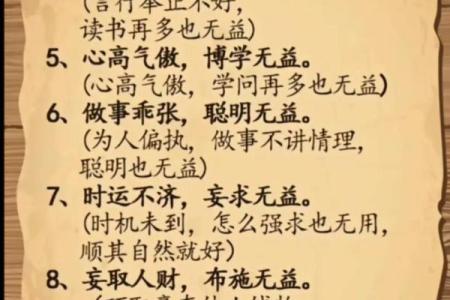 (言行举止不好，
读书再多也无益)
5、心高气傲，博学无益。
(心高气傲，学问再多也无益)
6、做事乖张，聪明无益。
(为人偏执，做事不讲情理，
聪明也无益)
7、时运不济，妄求无益。
(时机未到，怎么强求也无用，
顺其自然就好)
8、妄取人财，布施无益。